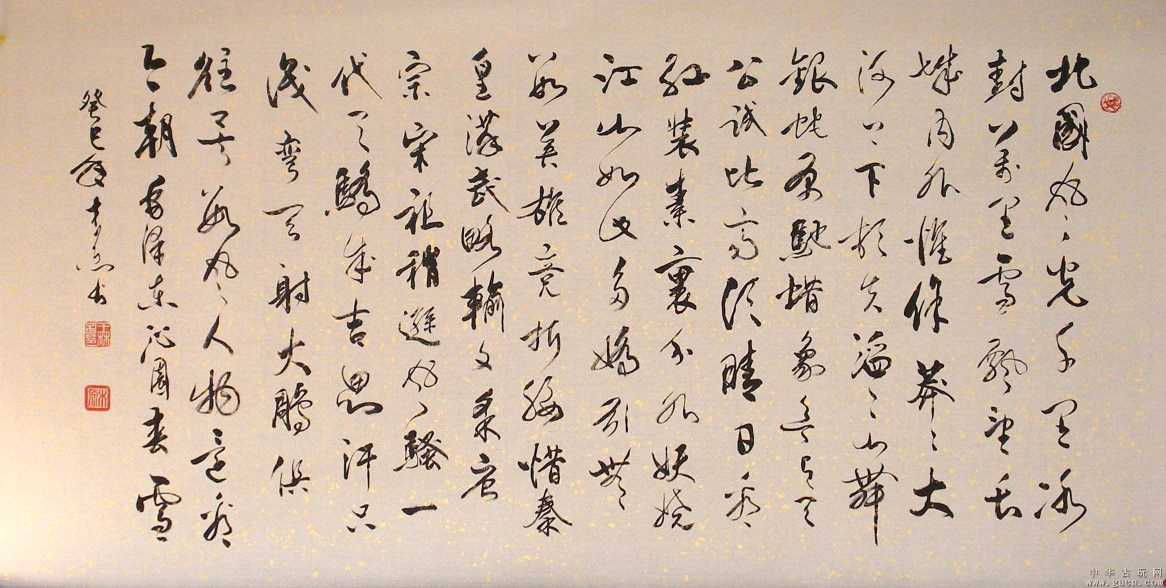 北國风光千里冰
封万里雪飘望长
城内外惟余莽莽大
河上下顿失滔滔山舞
銀蛇原馳蜡象欲与天
公試比高须晴日看
红装素裹分外妖娆
江山如此多嬌引無
数英雄竞折腰惜秦
皇漢武略輸文采唐
宗宋祖稍遜风骚一
代天驕成吉思汗只
识弯弓射大鵰俱
往矣数风流人物还看
今朝毛泽东沁園春雪
癸巳年 书
中华古玩网
www.gucn.com